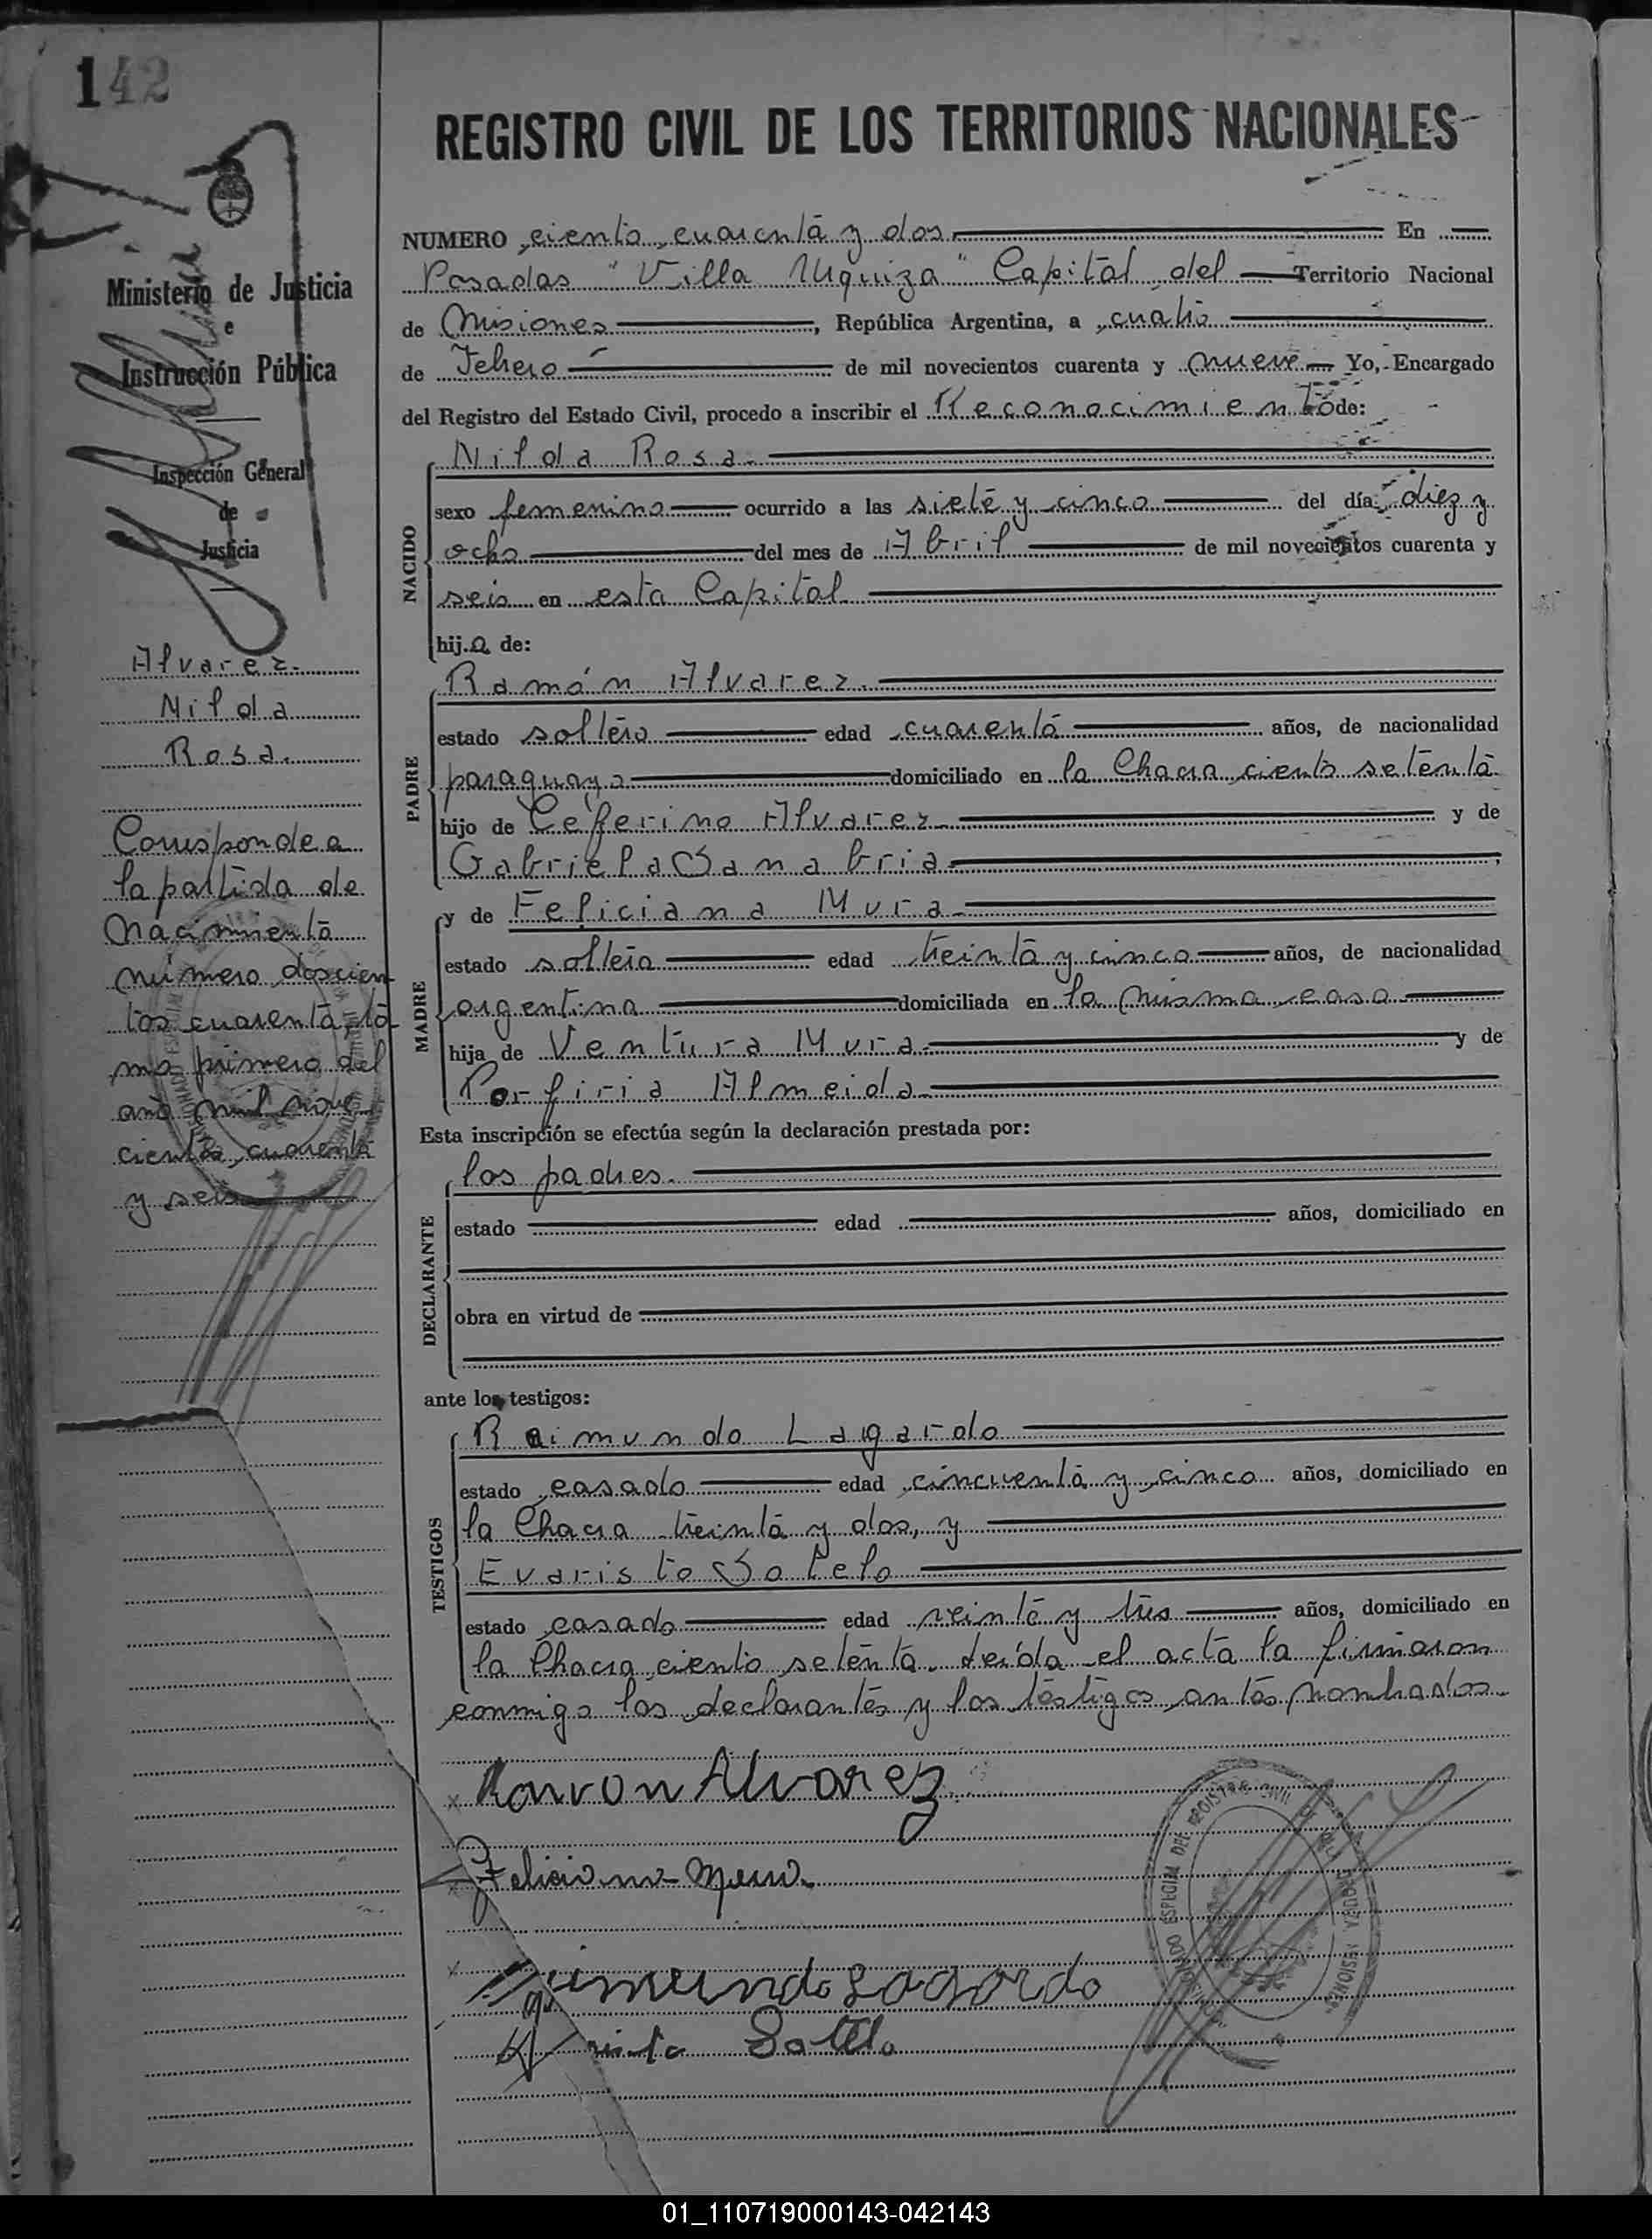 142
REGISTRO CIVIL DE LOS TERRITORIOS NACIONALES
Ministerio de Justicia
e
Instrucción Pública
Inspección General
de
Justicia
Alvarez.
Nilda
Rosa.
Corresponde a
la partida de
nacimiento
número doscien
tos cuarenta, to
mo primero del
año mil nove
cientos cuarenta
y seis
NUMERO ciento cuarenta y dos. En
Posadas "Villa Urquiza" Capital del Territorio Nacional
de Misiones, República Argentina, a cuatro
de Febrero de mil novecientos cuarenta y nueve Yo, Encargado
del Registro del Estado Civil, procedo a inscribir el Reconocimiento de:
NACIDO
Nilda Rosa.
sexo femenino ocurrido a las siete y cinco del día diez y
ocho del mes de Abril de mil novecientos cuarenta y
seis en esta Capital
hija de:
PADRE
Ramón Alvarez.
estado soltero edad cuarenta años, de nacionalidad
paraguaya domiciliado en la Chacra ciento setenta
hijo de Ceferino Alvarez y de
Gabriela Sanabria,
MADRE
y de Feliciana Mura
estado soltera edad treinta y cinco años, de nacionalidad
argentina domiciliada en la misma casa
hija de Ventura Mura y de
Porfiria Almeida
Esta inscripción se efectúa según la declaración prestada por:
DECLARANTE
los padres.
estado edad años, domiciliado en
obra en virtud de
ante los testigos:
TESTIGOS
Raimundo Lagardo
estado casado edad cincuenta y cinco años, domiciliado en
la Chacra treinta y dos, y
Evaristo Sotelo
estado casado edad veinte y tres años, domiciliado en
la Chacra ciento setenta. Leída el acta la firmaron
conmigo los declarantes y los testigos antes nombrados.
Ramon Alvarez
Feliciana Mura
Raimundo Lagardo
Sotelo
01_110719000143-042143